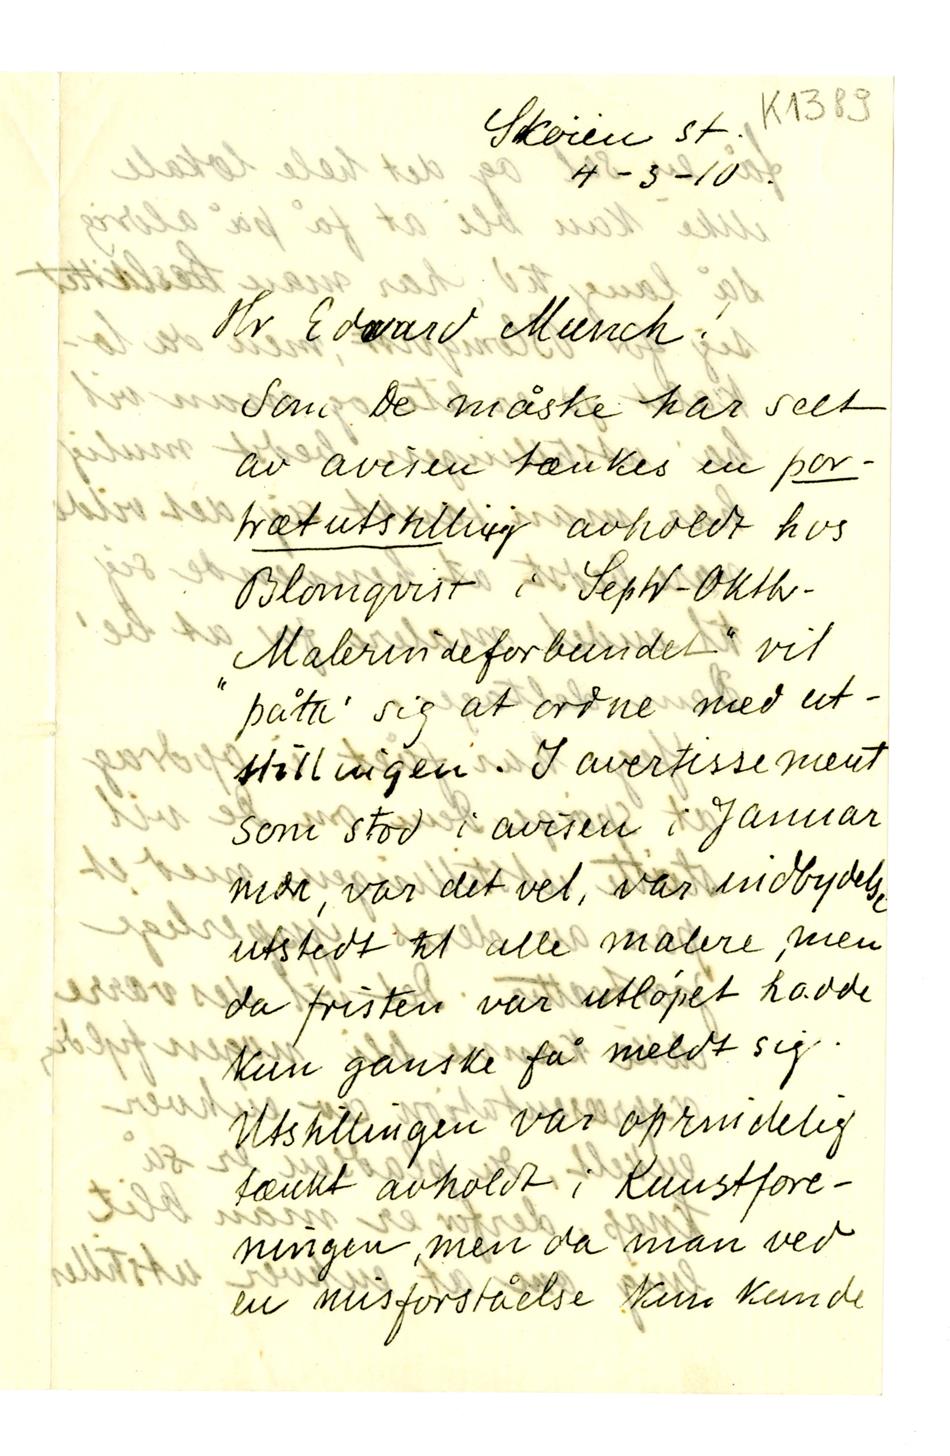 K1389
Skøien st.
4-3-10.
Hr Edvard Munch!
Som De måske har seet
av avisen tænkes en por-
trætutstilling avholdt hos
Blomqvist i Septbr-Oktbr-
"Malerindeforbundet" vil
påta' sig at ordne med ut-
stillingen. I avertissement
som stod i avisen i Januar
mdr, var det vel, var indbydelse
utstedt til alle malere, men
da fristen var utløpet hadde
kun ganske få meldt sig.
Utstillingen var oprindelig
tænkt avholdt i Kunstfore-
ningen, men da man ved
en misforståelse kun kunde